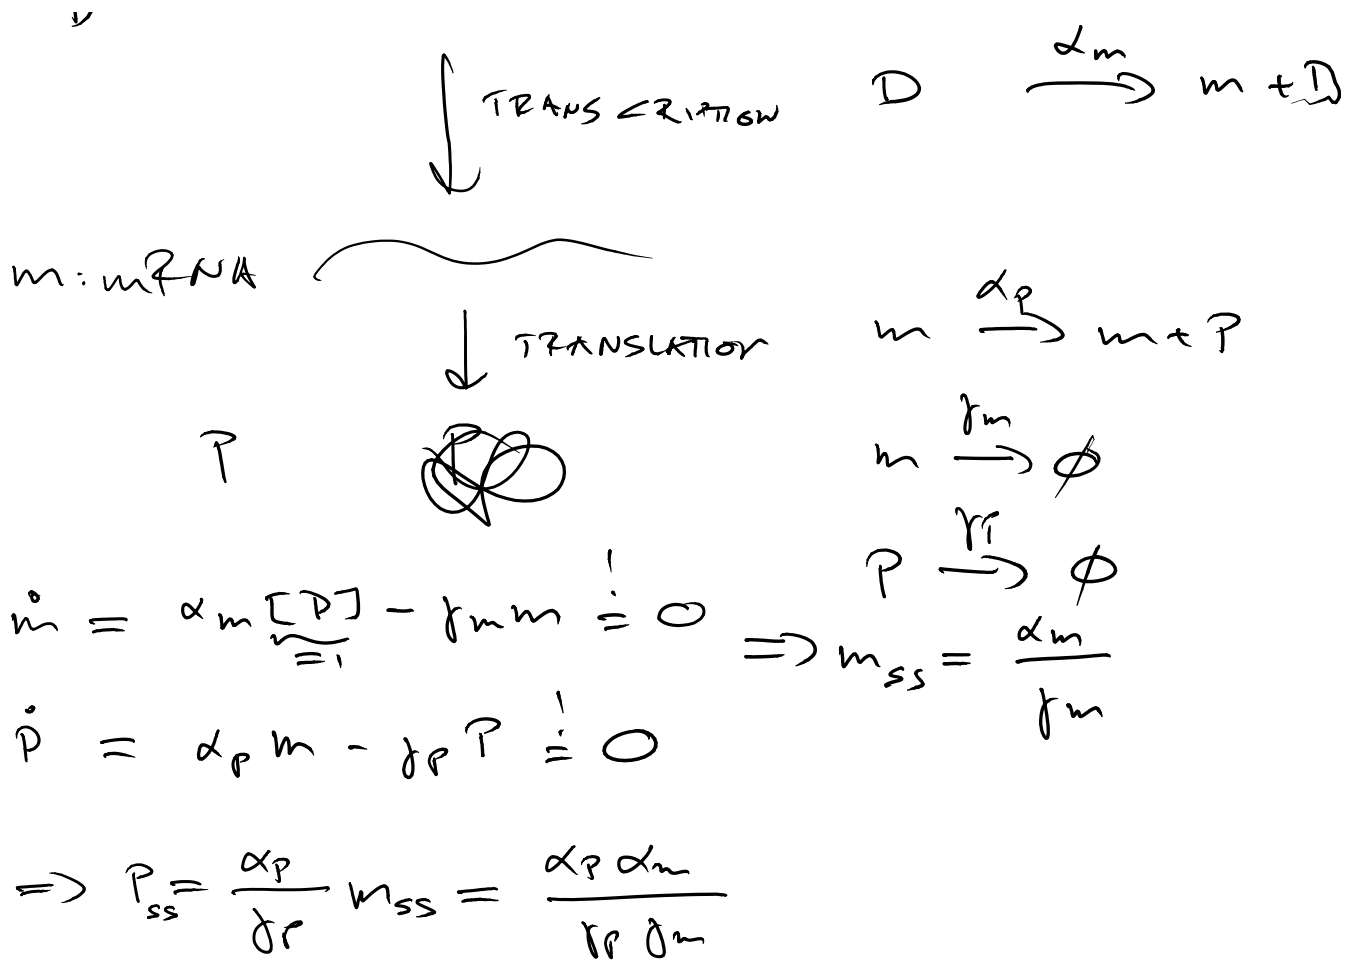 TRANSCRIPTION
D →^{α_m} m + D
m : mRNA
TRANSLATION
m →^{α_p} m + P
P
P
m →^{γ_m} ∅
P →^{γ_P} ∅
ṁ = α_m [D] - γ_m m =! 0
= 1
⇒ m_ss = α_m / γ_m
Ṗ = α_p m - γ_p P =! 0
⇒ P_ss = α_p / γ_p m_ss = α_p α_m / γ_p γ_m